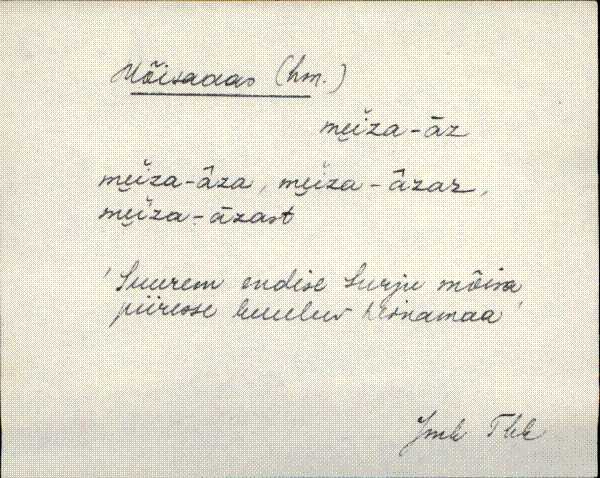 Mõisaaas (hm.)
mei̯za-āz
mei̯za-âza, mei̯za-âzaz,
mei̯za-āzast
'Suurem endise Surju mõisa
piiresse kuuluv heinamaa'